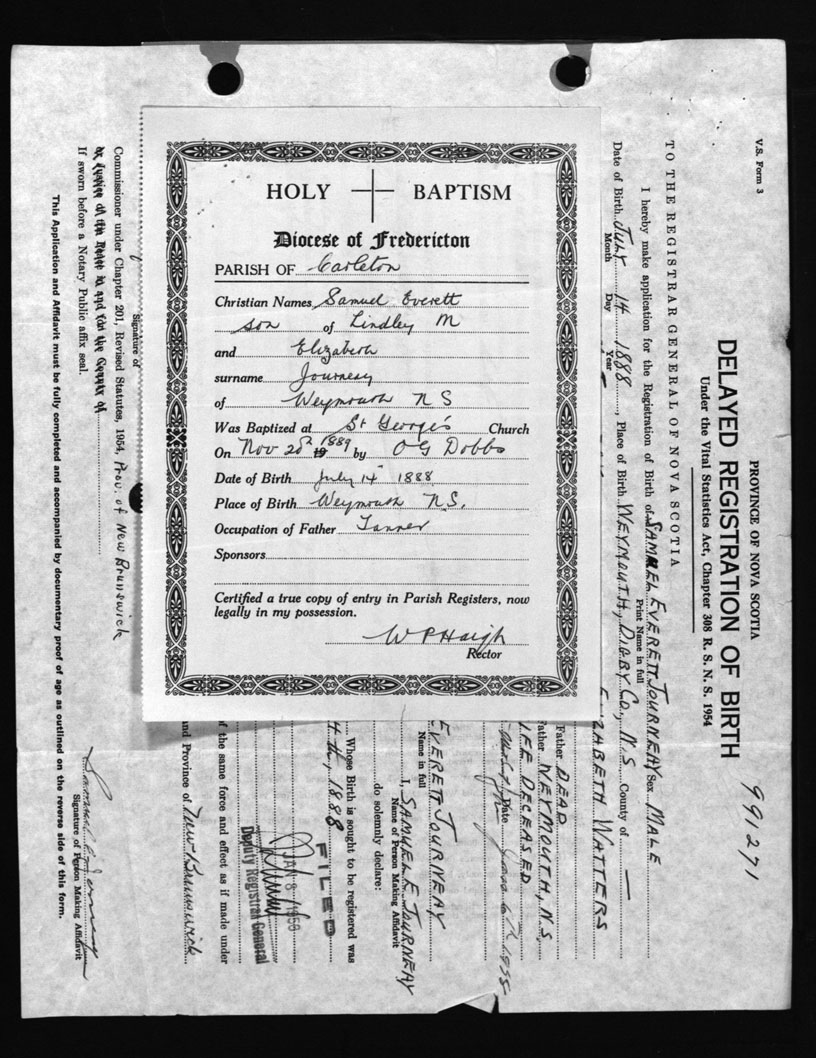 HOLY BAPTISM
Diocese of Fredericton
PARISH OF Carleton
Christian Names Samuel Everett
son of Lindley M
and Elizabeth
surname Journeay
of Weymouth N S
Was Baptized at St George's Church
On Nov 20th 1889 by O G Dobbs
Date of Birth July 14th 1888
Place of Birth Weymouth N.S.
Occupation of Father Tanner
Sponsors
Certified a true copy of entry in Parish Registers, now
legally in my possession.
W P Haigh
Rector
V.S. Form 3
991271
PROVINCE OF NOVA SCOTIA
DELAYED REGISTRATION OF BIRTH
Under the Vital Statistics Act, Chapter 308 R. S. N. S. 1954
TO THE REGISTRAR GENERAL OF NOVA SCOTIA
I hereby make application for the Registration of Birth of SAMUEL EVERETT JOURNEAY Sex MALE
Print Name in full
Date of Birth JULY 14 1888, Place of Birth WEYMOUTH, DIGBY CO., N.S. County of —
Month Day Year
ZABETH WATTERS
Father DEAD
Father WEYMOUTH, N.S.
DECEASED
Date Jany 6th 1955
EVERETT JOURNEAY
Name in full
I, SAMUEL E JOURNEAY
Name of Person Making Affidavit
do solemnly declare:
Whose Birth is sought to be registered was
4th, 1888
FILED
JAN 8
Deputy Registrar General
f the same force and effect as if made under
and Province of New Brunswick
Signature of
Commissioner under Chapter 201, Revised Statutes, 1954, Prov. of New Brunswick
or Justice of the Peace in and for the County of
If sworn before a Notary Public affix seal.
Samuel E Journeay
Signature of Person Making Affidavit
This Application and Affidavit must be fully completed and accompanied by documentary proof of age as outlined on the reverse side of this form.